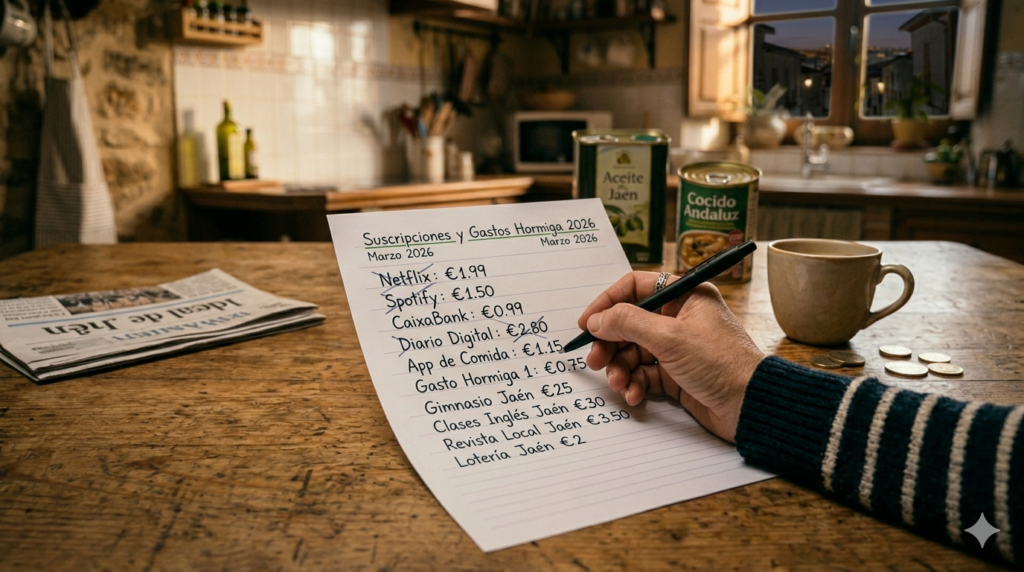 Suscripciones y Gastos Hormiga 2026
Marzo 2026
Marzo 2026
Netflix: €1.99
Spotify: €1.50
CaixaBank: €0.99
Diario Digital: €2.80
App de Comida: €1.15
Gasto Hormiga 1: €0.75
Gimnasio Jaén €25
Clases Inglés Jaén €30
Revista Local Jaén €3.50
Lotería Jaén €2
Aceite
Jaén
Cocido
Andaluz
Ideal de